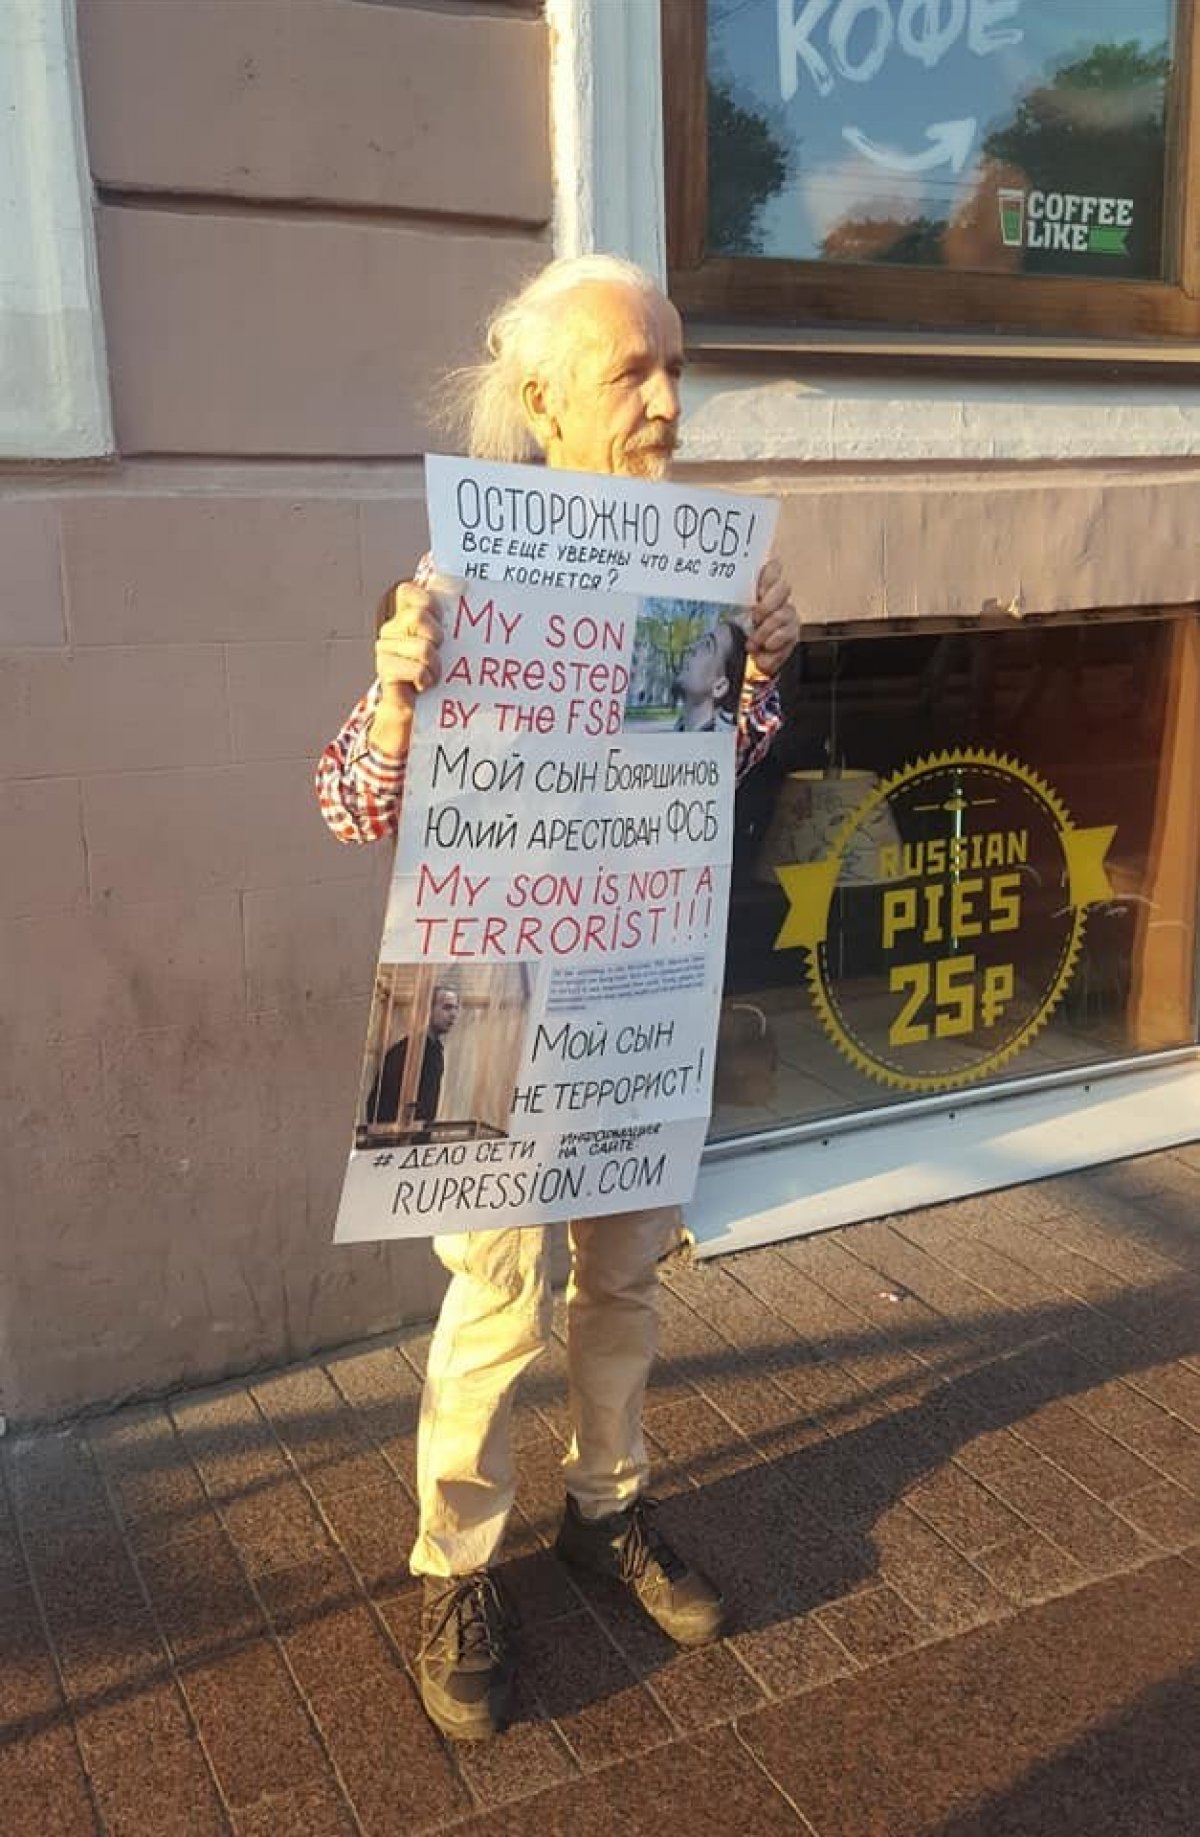 КОФЕ
COFFEE
LIKE
ОСТОРОЖНО ФСБ!
ВСЕ ЕЩЕ УВЕРЕНЫ ЧТО ВАС ЭТО
НЕ КОСНЕТСЯ?
MY SON
ARRESTED
BY THE FSB
МОЙ СЫН БОЯРШИНОВ
ЮЛИЙ АРЕСТОВАН ФСБ
MY SON IS NOT A
TERRORIST!!!
МОЙ СЫН
НЕ ТЕРРОРИСТ!
# ДЕЛО СЕТИ
ИНФОРМАЦИЯ
НА САЙТЕ:
RUPRESSION.COM
RUSSIAN
PIES
25₽